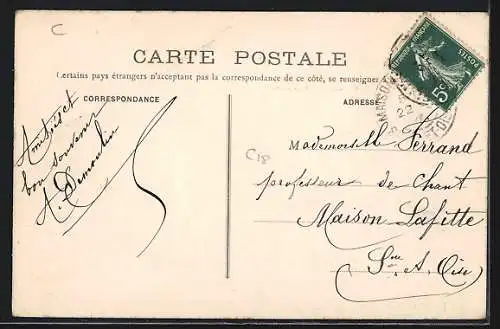 C
CARTE POSTALE
Certains pays étrangers n'acceptant pas la correspondance de ce côté, se renseigner à
CORRESPONDANCE
ADRESSE
POSTES
5c
MAISON
22
Amitiés et
bon souvenir
A Demoulin
C18
Mademoiselle Ferrand
professeur de Chant
Maison Lafitte
Sne & Oise